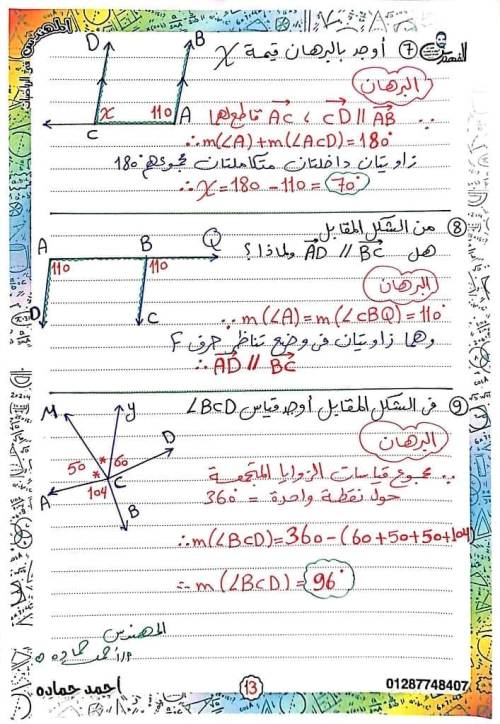 المهندس
فى الرياضيات
⑦ أوجد بالبرهان قيمة x
البرهان
D B
x 110
C A
∵ AB // CD ، AC قاطع لهما
∴ m(∠A)+m(∠ACD)=180°
زاويتان داخلتان متكاملتان مجموعهم 180°
∴ x = 180 - 110 = 70°
⑧ من الشكل المقابل
هل AD // BC ولماذا ؟
A B Q
110 110
D C
البرهان
∵ m(∠A) = m(∠CBQ) = 110°
وهما زاويتان فى وضع تناظر حرف F
∴ AD // BC
⑨ فى الشكل المقابل أوجد قياس ∠BCD
M y D
50 60
* *
A 104 C B
البرهان
∵ مجموع قياسات الزوايا المتجمعة
حول نقطة واحدة = 360°
∴ m(∠BCD) = 360 - (60+50+50+104)
∴ m(∠BCD) = 96°
المهندس
أ/ أحمد حماده
احمد حماده
13
01287748407